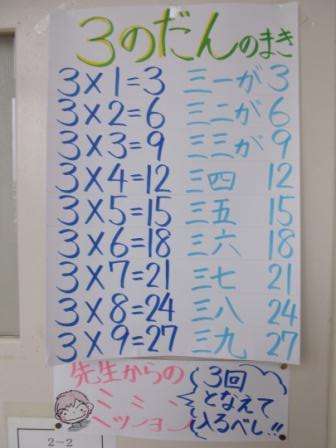 3のだんのまき
3×1=3 三一が 3
3×2=6 三二が 6
3×3=9 三三が 9
3×4=12 三四 12
3×5=15 三五 15
3×6=18 三六 18
3×7=21 三七 21
3×8=24 三八 24
3×9=27 三九 27
先生からの
ミニ
ミッション
3回
となえて
入るべし!!
2-2